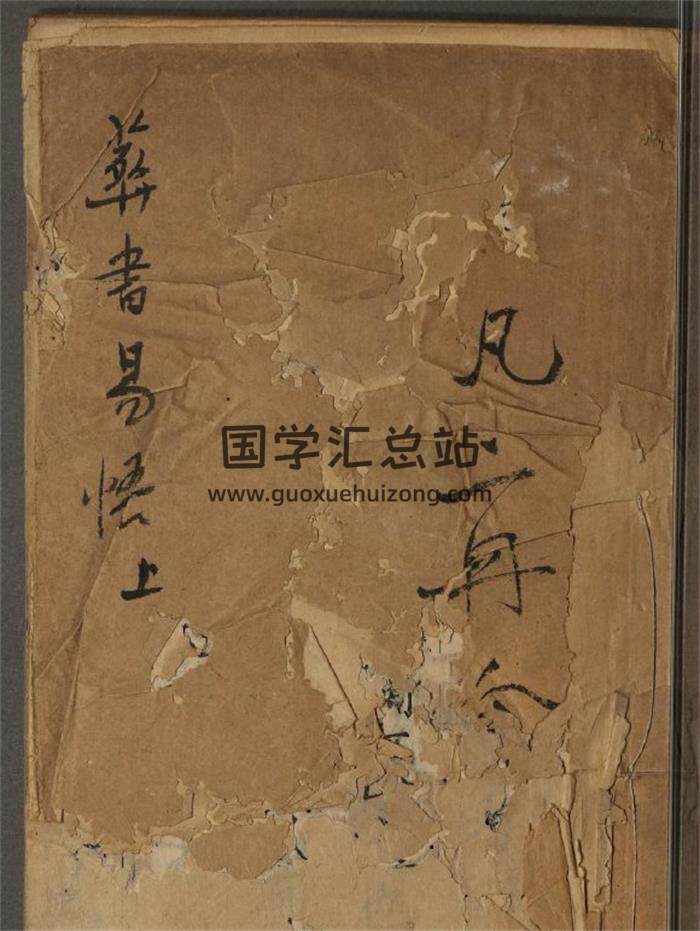 凡 再
葬書易悟上
国学汇总站
www.guoxuehuizong.com